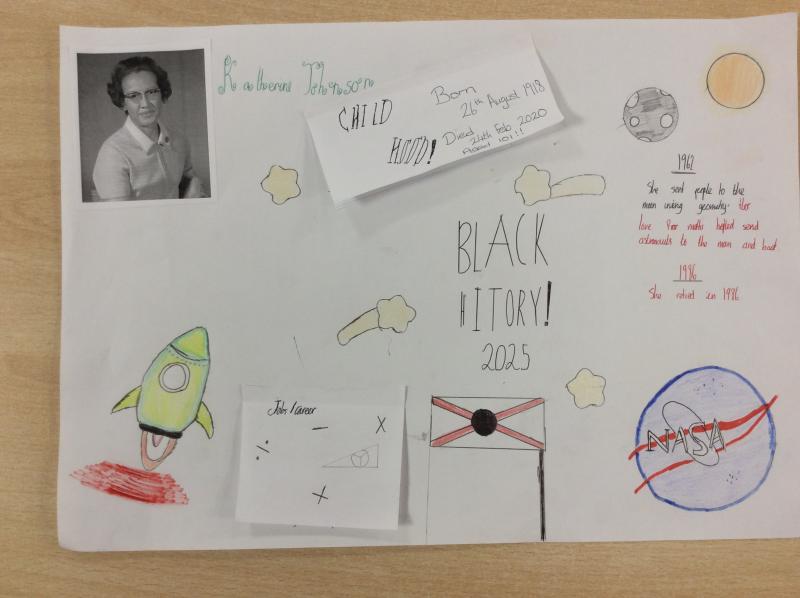 Katherine Johnson
CHILD
HOOD!
Born
26th August 1918
Died
24th Feb 2020
Aged 101!!
1962
She sent people to the
moon using geometry. Her
love for maths helped send
astronauts to the moon and back.
1986
She retired in 1986
BLACK
HITORY!
2025
Jobs/career
NASA